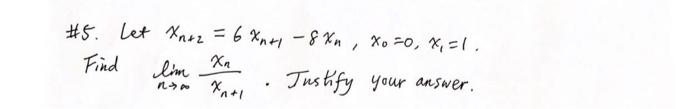 #5. Let xₙ₊₂ = 6 xₙ₊₁ - 8 xₙ , x₀ = 0, x₁ = 1.
Find lim n→∞ xₙ / xₙ₊₁ . Justify your answer.